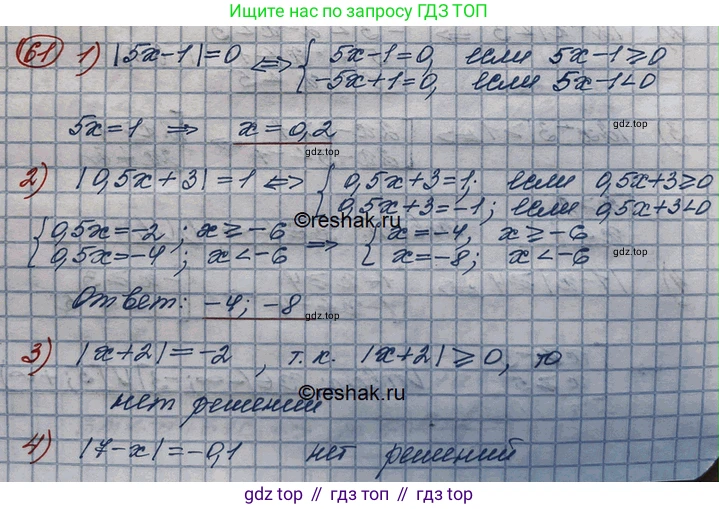 Ищите нас по запросу ГДЗ ТОП
61 1) |5x-1|=0 ⇔ { 5x-1=0, если 5x-1≥0
-5x+1=0, если 5x-1<0
gdz.top
5x=1 ⇒ x=0,2
gdz.top
2) |0,5x+3|=1 ⇔ { 0,5x+3=1; если 0,5x+3≥0
0,5x+3=-1; если 0,5x+3<0
©reshak.ru
{ 0,5x=-2; x≥-6 ⇒ { x=-4, x≥-6
0,5x=-4; x<-6 x=-8; x<-6
gdz.top
Ответ: -4; -8
gdz.top
3) |x+2|=-2, т.к. |x+2|≥0, то
нет решений
©reshak.ru
4) |7-x|=-0,1 нет решений
gdz.top // гдз топ // gdz.top